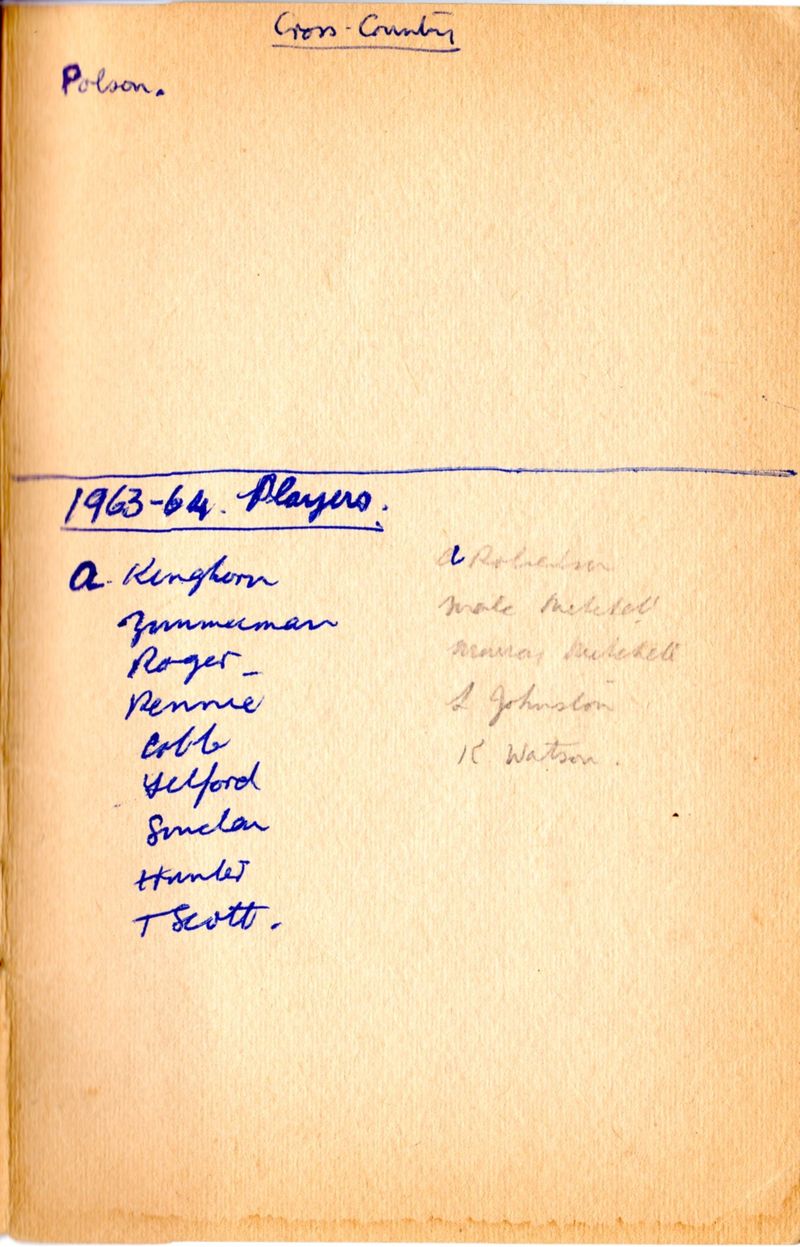 Cross-Country
Polson.
1963-64. Players.
A. Kinghorn
Zimmerman
Roger
Rennie
Cobb
Telford
Sinclair
Hunter
T Scott.
A Robertson
Malc Mitchell
Murray Mitchell
L Johnston
K Watson.